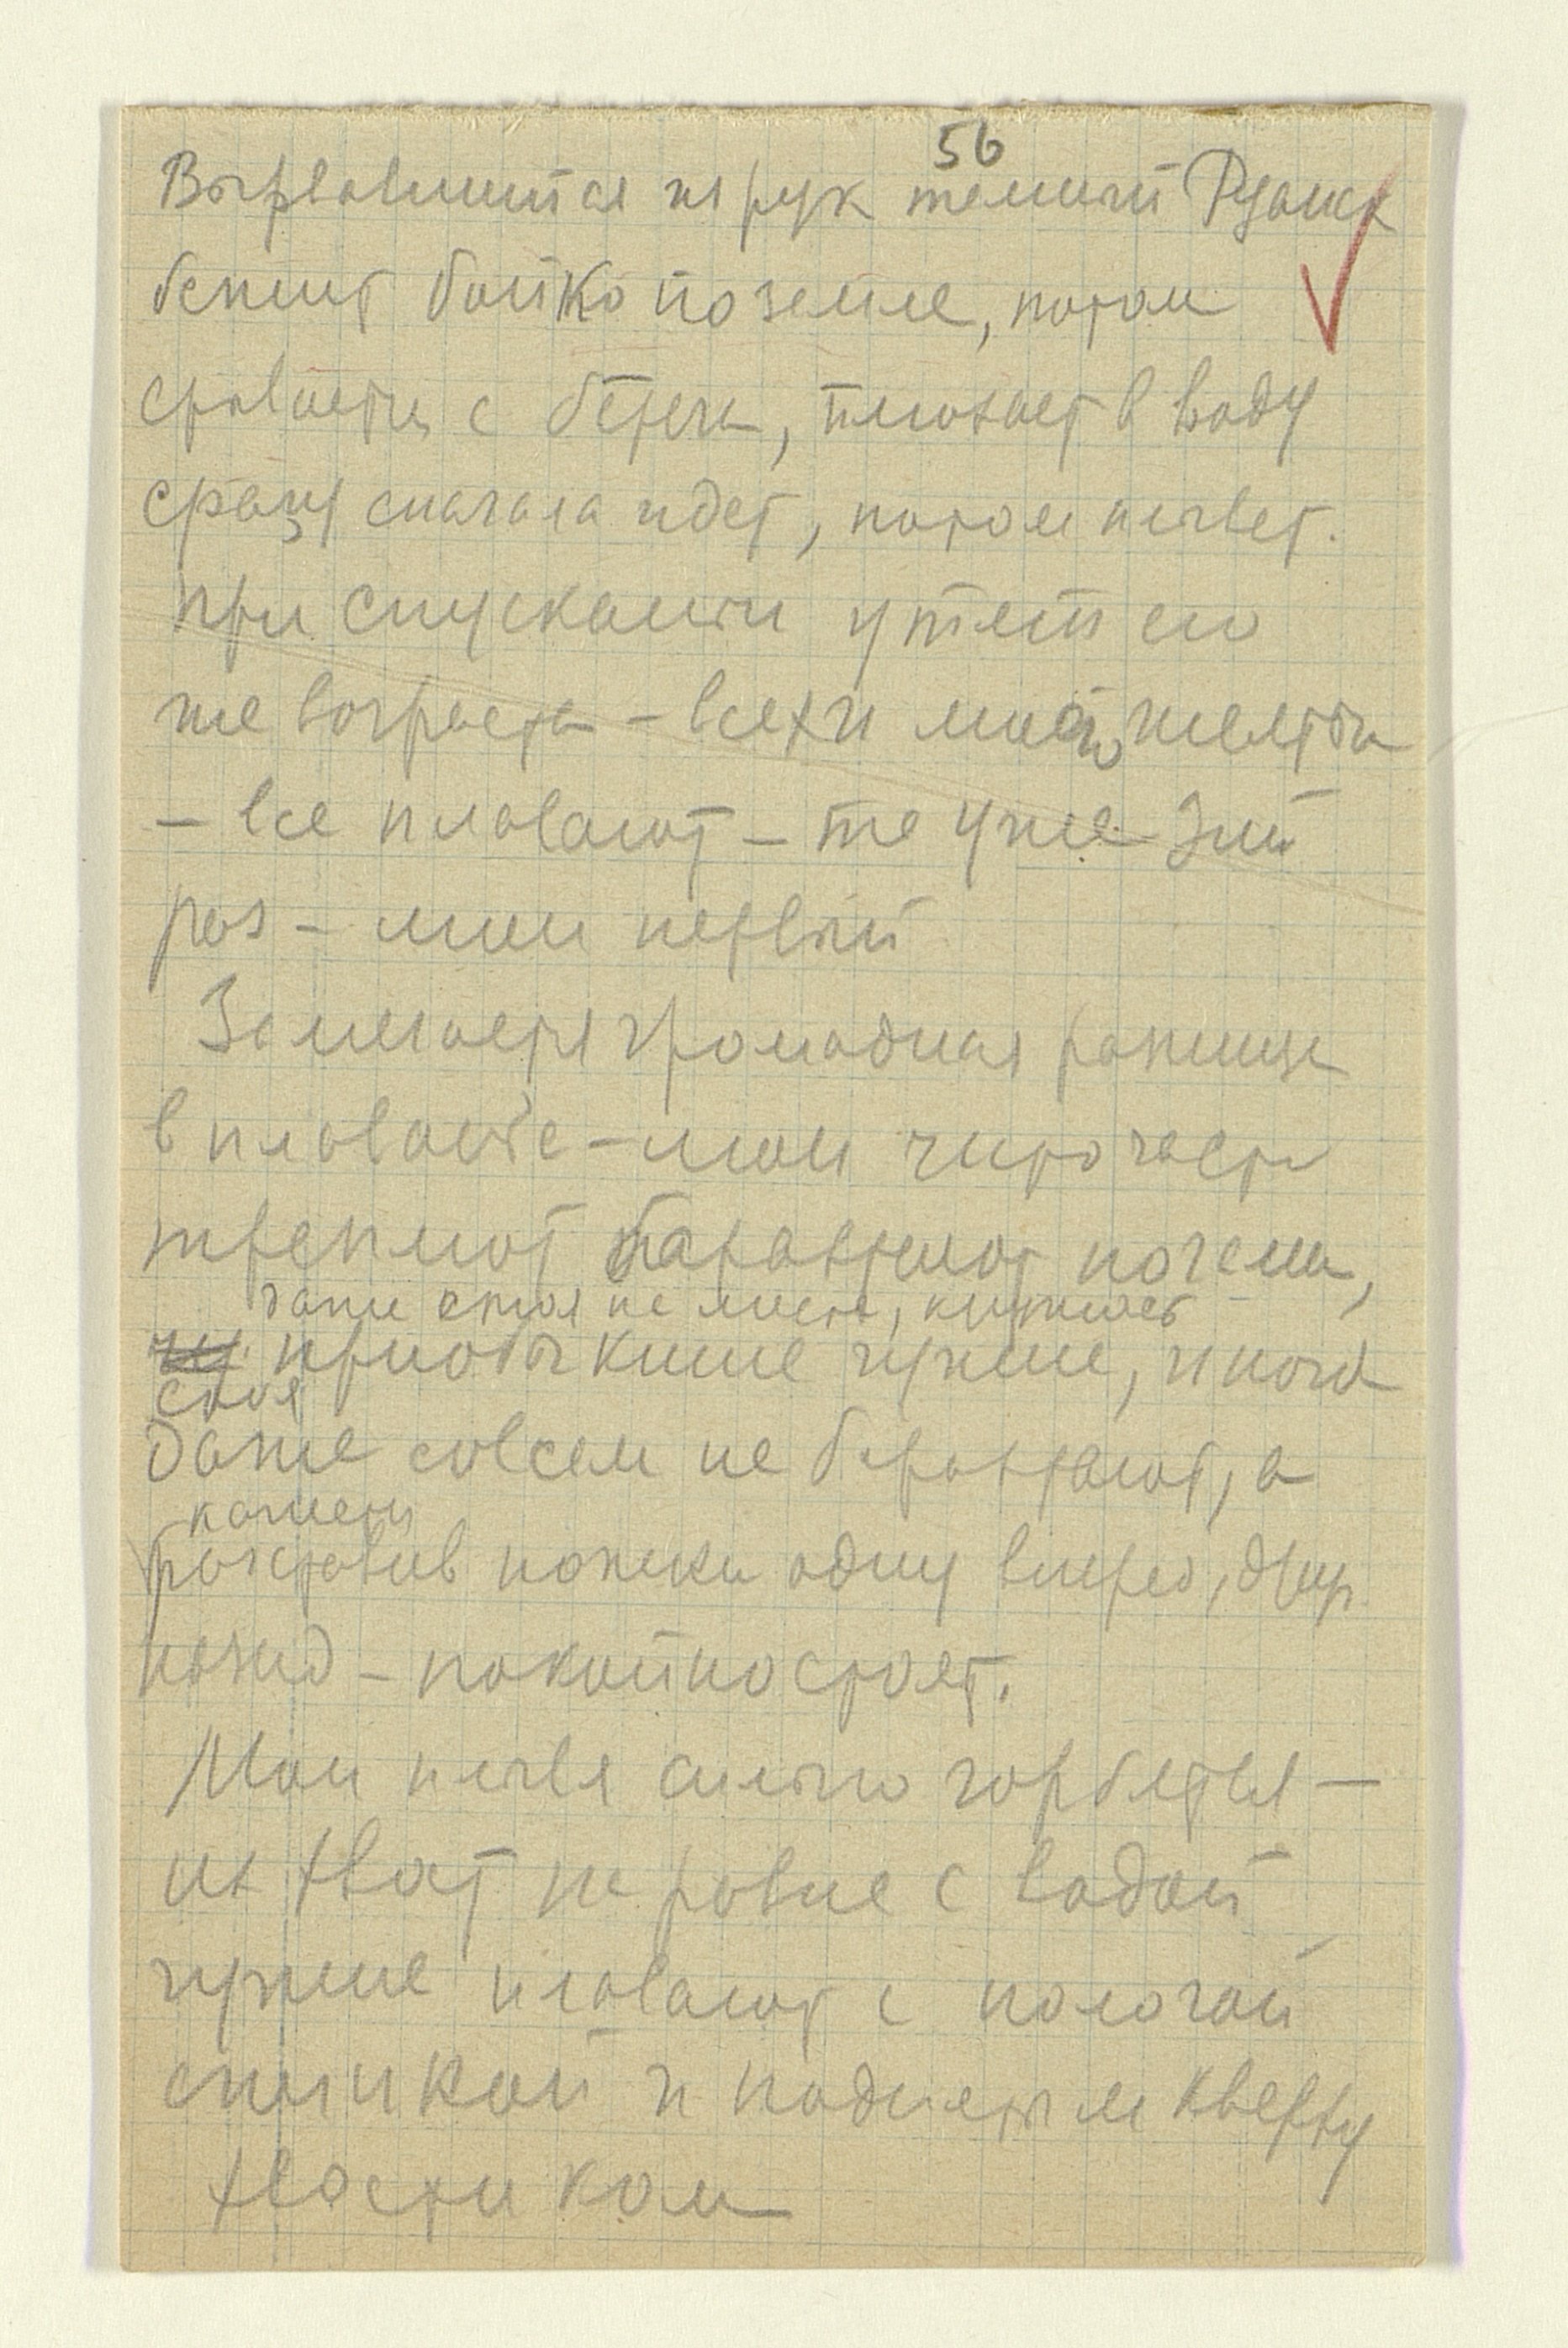 56
Вырвавшийся из рук темный Рудик
бежит бойко по земле, потом
срывается с берега, плюхает в воду
сразу сначала идет, потом плывет.
при спускании утят его
же возраста – всех и моего
– все плавают – те уже 3ий
раз – мои первый
Замечается громадная разница
в плаваньи – мои чистo часто
треплют барахтают ногами,
даже стоя на месте, кружась
приобыкшие чужие, иногда
стоя
даже совсем не барахтают, а
кажется
расставив ножки одну вперед, друг.
назад – покойно стоят.
Мои плывя сильно горбятся –
их хвост на ровне с водой
чужие плавают с пологой
спинкой и поднятым кверху
хвостиком